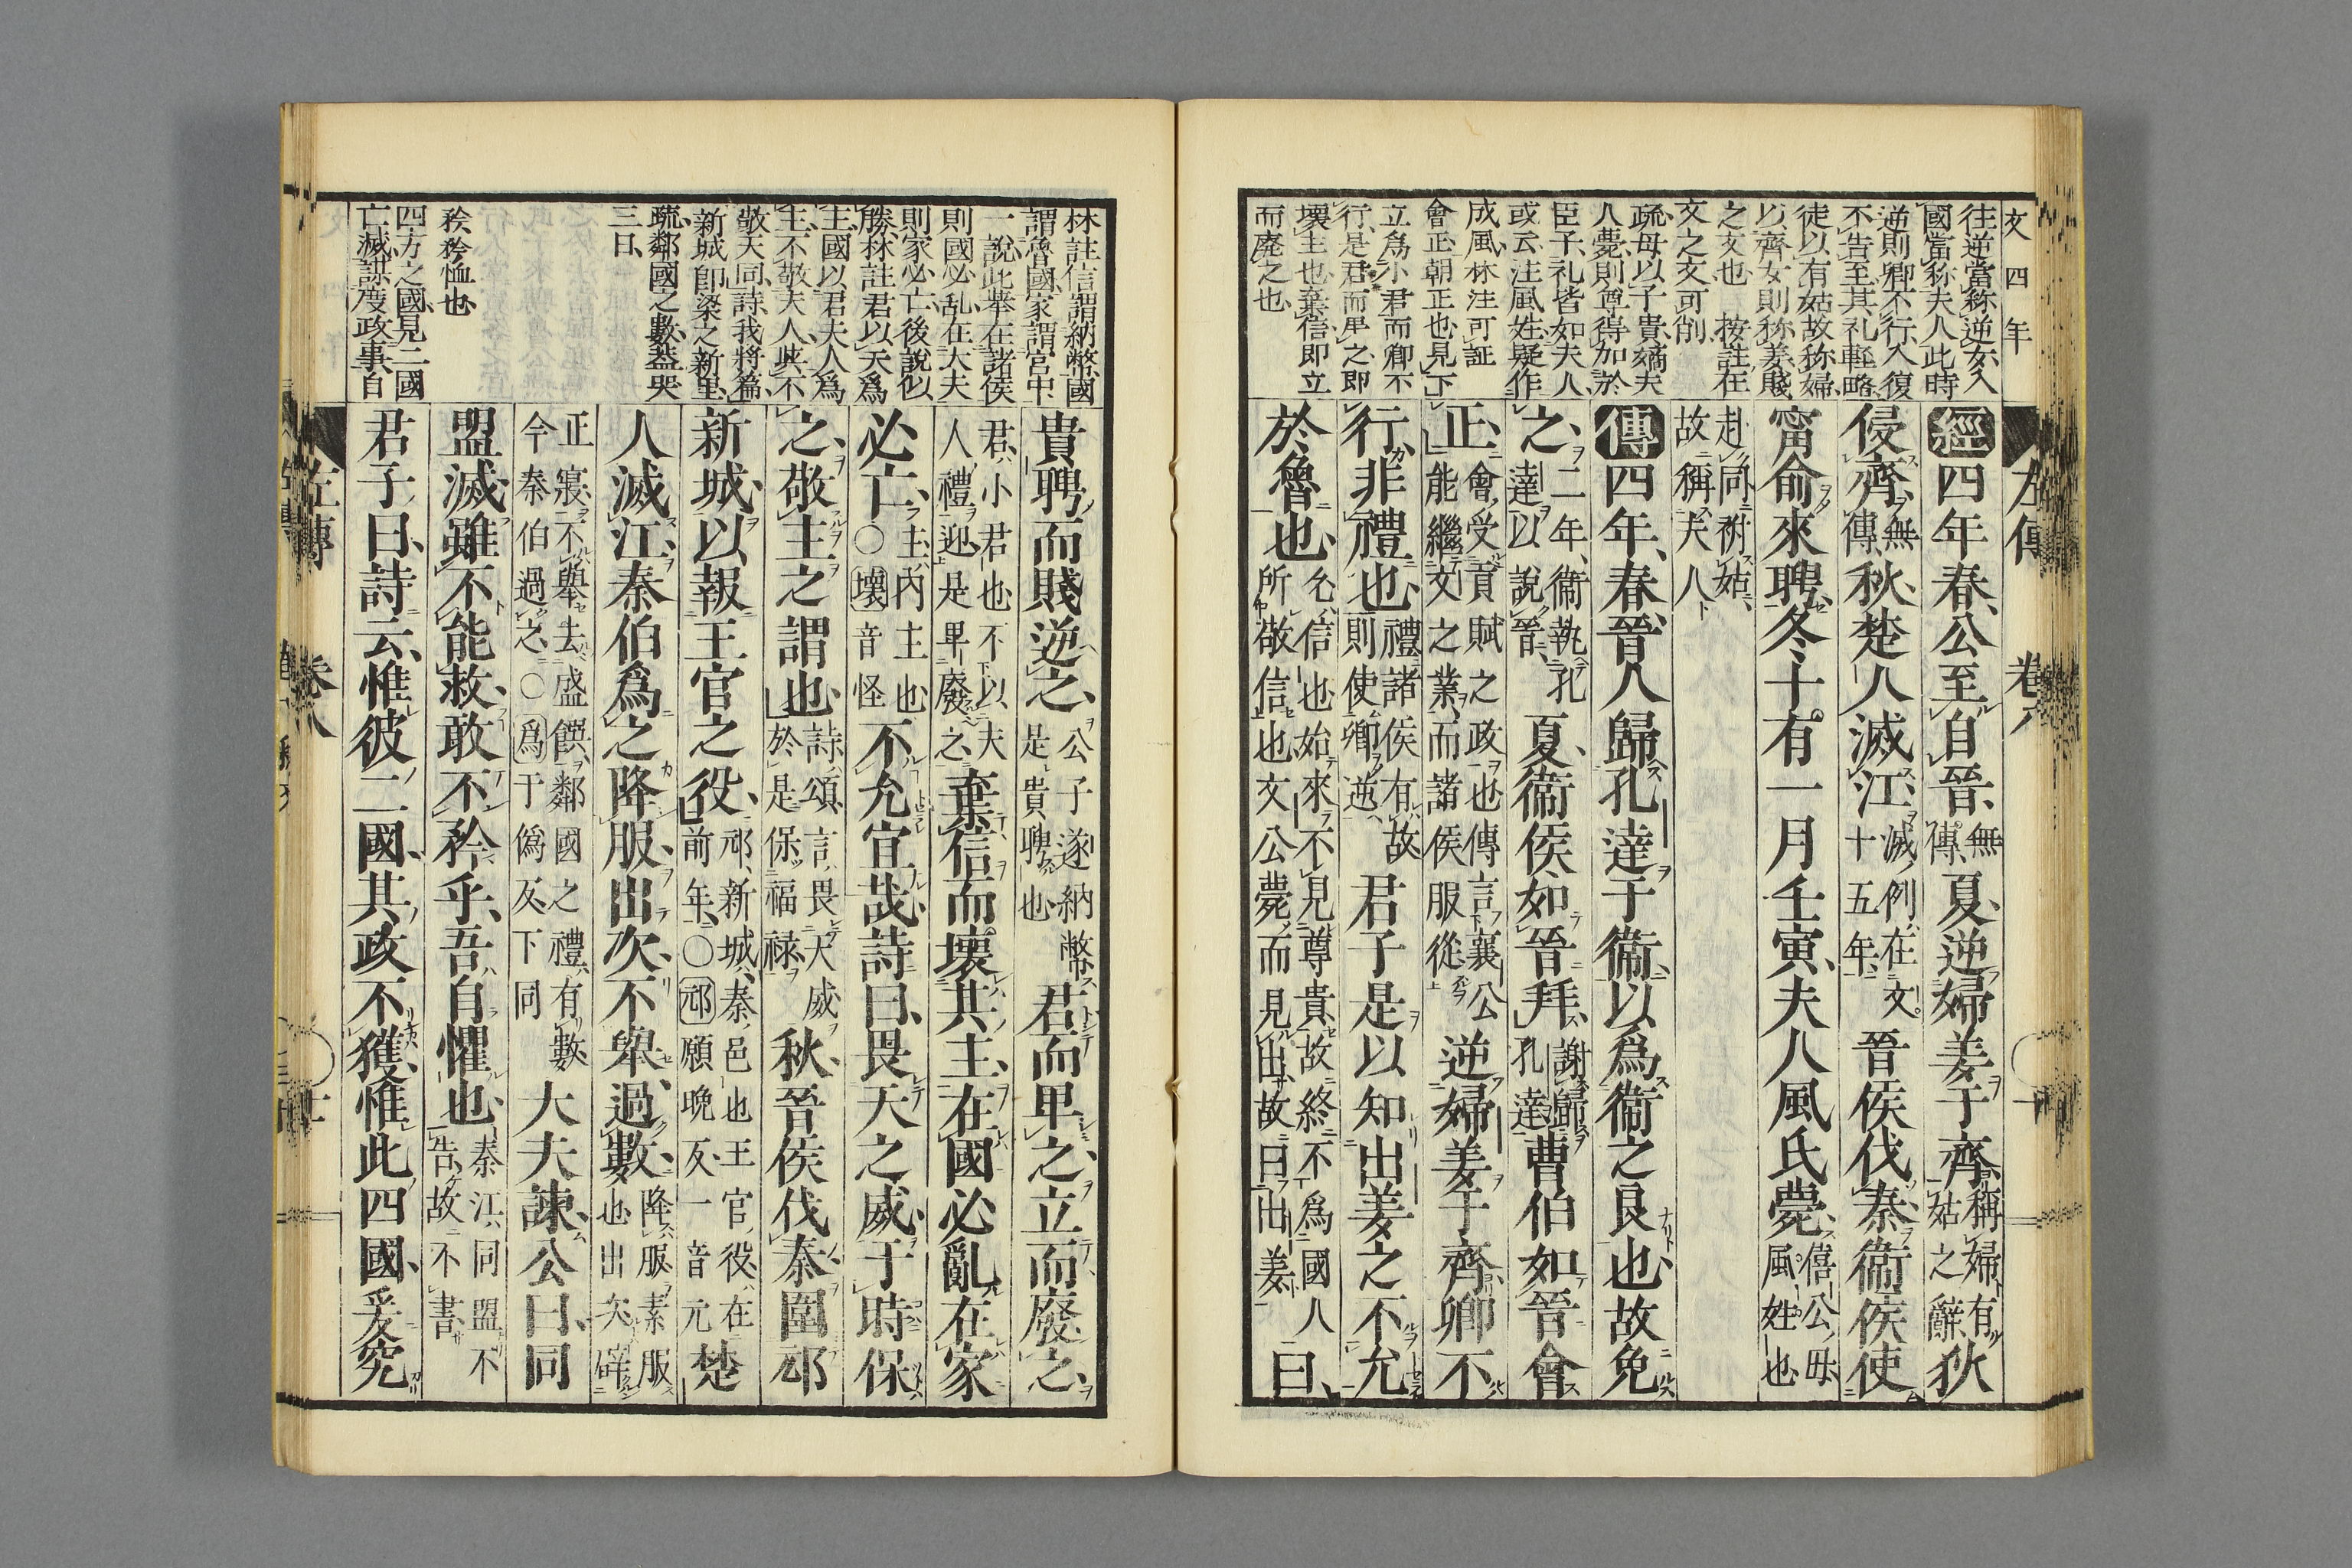 文四年
左傳　卷八
往逆當称逆女入
國當称夫人此時
逆則卿不行入復
不告至其礼輕略
徒以有姑故称婦
以齊女則称姜賤
之文也　按註在
文之文可削
疏母以子貴嫡夫
人薨則尊得加於
臣子礼皆如夫人
或云注風姓疑作
成風林注可証
會正朝正也見下
立爲小君而卿不
行是君而卑之即
壞主也棄信即立
而廢之也
經四年春公至自晉無傳夏逆婦姜于齊稱婦有姑之辭狄
侵齊無傳秋楚人滅江滅例在文十五年晉侯伐秦衞侯使
甯俞來聘冬十有一月壬寅夫人風氏薨僖公母風姓也
赴同祔姑故稱夫人
傳四年春晉人歸孔達于衞以爲衞之良也故免
之二年衞執孔達以說晉夏衞侯如晉拜謝歸孔達曹伯如晉會
正會受貢賦之政也傳言襄公能繼文之業而諸侯服從逆婦姜于齊卿不
行非禮也禮諸侯有故則使卿逆君子是以知出姜之不允
於魯也允信也始來不見尊貴故終不爲國人所敬信也文公薨而見出故曰出姜曰
林註信謂納幣國
謂魯國家謂宮中
一說此挙在諸侯
則國必乱在大夫
則家必亡後說似
勝林註君以天爲
主國以君夫人爲
主不敬夫人與不
敬天同詩我將篇
新城即梁之新里
疏鄰國之數蓋哭
三日
矜矜恤也
四方之國見二國
亡滅謀度政事自
貴聘而賤逆之公子遂納幣是貴聘也君而卑之立而廢之
君小君也不以夫人禮迎是卑廢之棄信而壞其主在國必亂在家
必亡主內主也○壞音怪不允宜哉詩曰畏天之威于時保
之敬主之謂也詩頌言畏天威於是保福祿秋晉侯伐秦圍邧
新城以報王官之役邧新城秦邑也王官役在前年○邧願晚反一音元楚
人滅江秦伯爲之降服出次不舉過數降服素服也出次辟
正寢不舉去盛饌鄰國之禮有數今秦伯過之○爲于僞反下同大夫諫公曰同
盟滅雖不能救敢不矜乎吾自懼也秦江同盟不告故不書
君子曰詩云惟彼二國其政不獲惟此四國爰究
左傳　卷八　十